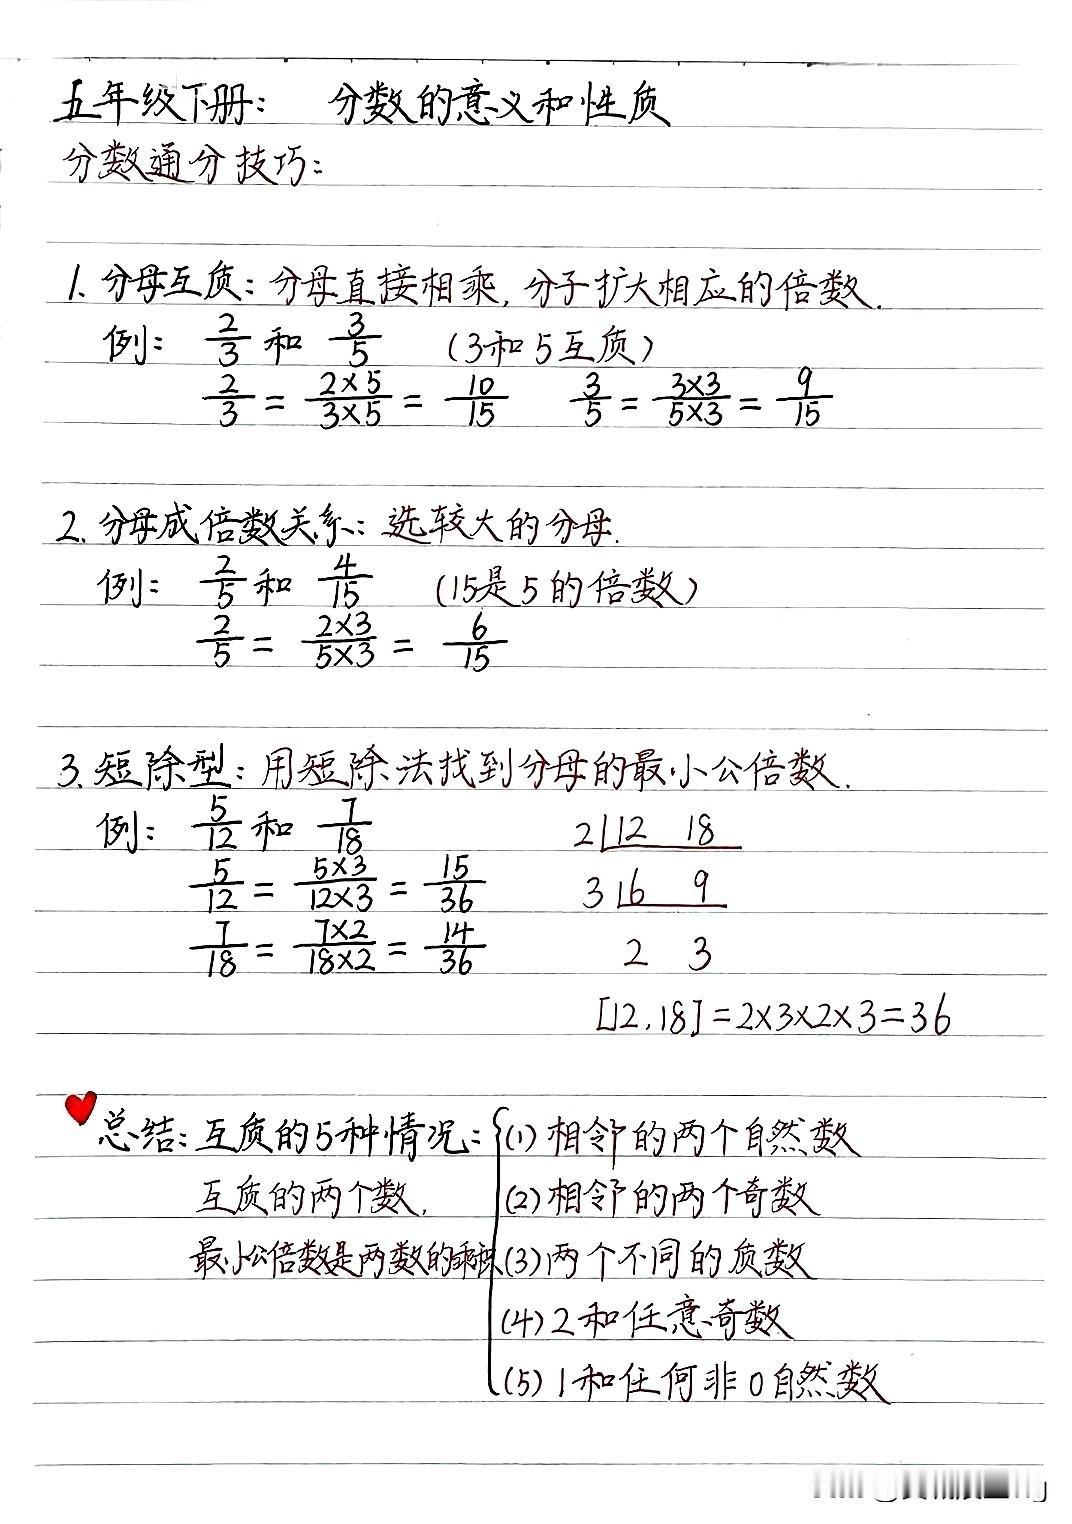 五年级下册: 分数的意义和性质
分数通分技巧:
1. 分母互质: 分母直接相乘, 分子扩大相应的倍数.
例: 2/3 和 3/5 (3和5互质)
2/3 = 2×5/3×5 = 10/15 3/5 = 3×3/5×3 = 9/15
2. 分母成倍数关系: 选较大的分母.
例: 2/5 和 4/15 (15是5的倍数)
2/5 = 2×3/5×3 = 6/15
3. 短除型: 用短除法找到分母的最小公倍数.
例: 5/12 和 7/18 2 12 18
5/12 = 5×3/12×3 = 15/36 3 6 9
7/18 = 7×2/18×2 = 14/36 2 3
[12,18]=2×3×2×3=36
总结: 互质的5种情况: (1) 相邻的两个自然数
互质的两个数, (2) 相邻的两个奇数
最小公倍数是两数的乘积 (3) 两个不同的质数
(4) 2和任意奇数
(5) 1和任何非0自然数